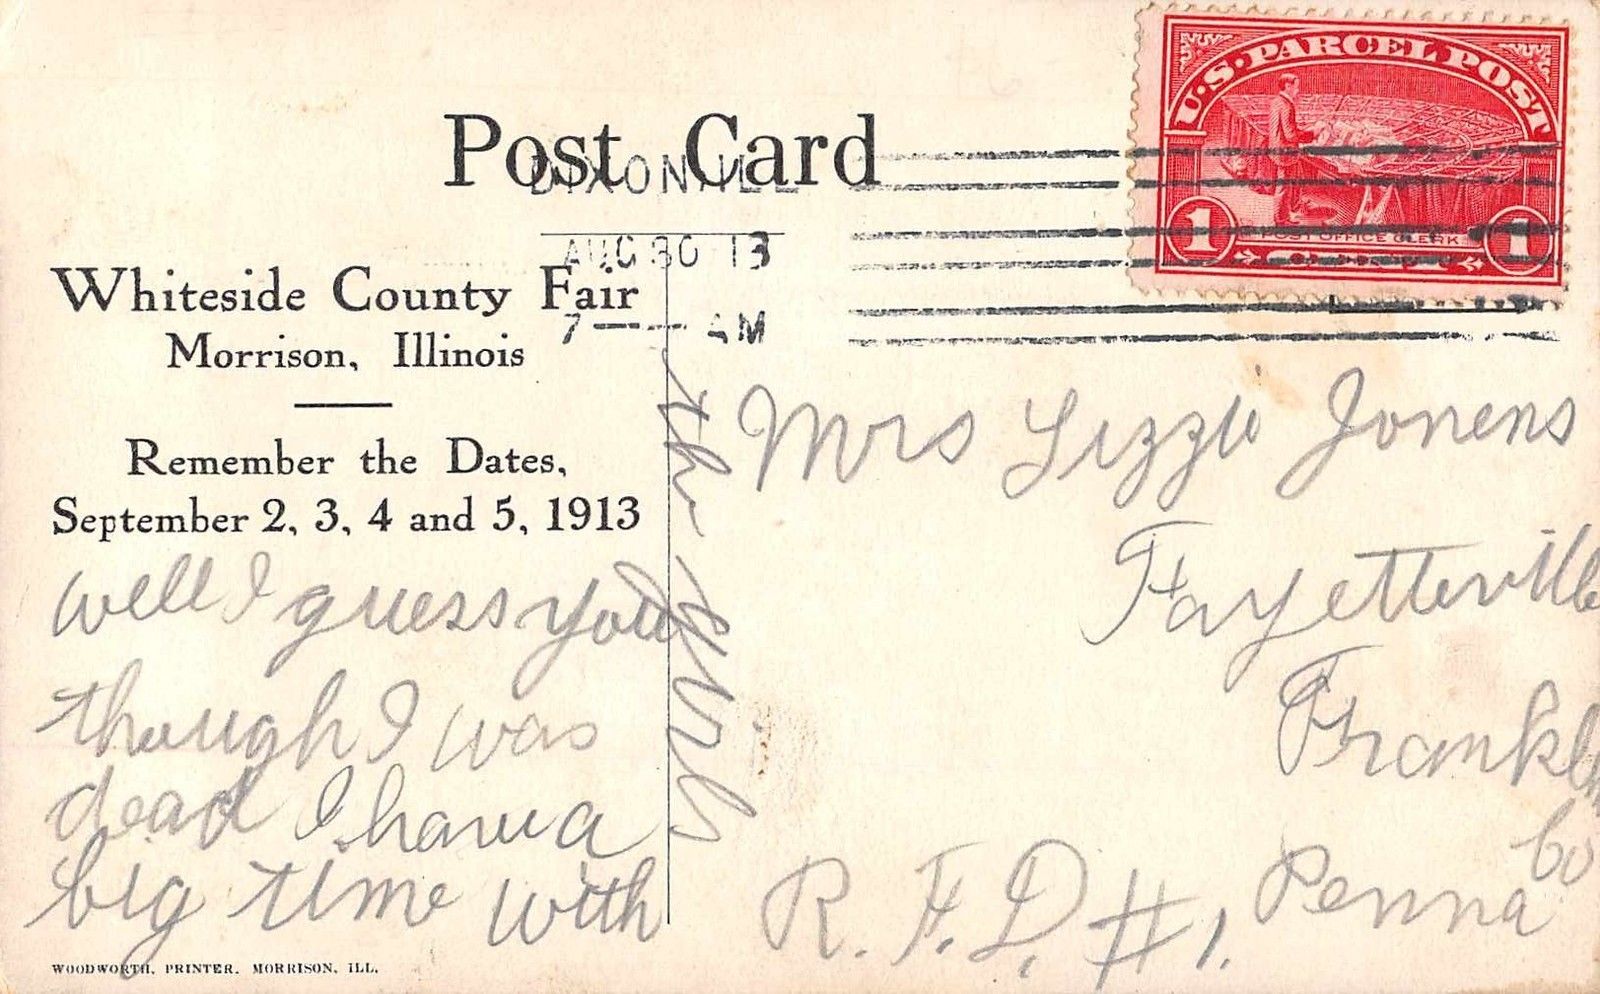 Post Card
DIXON ILL
AUG 30 13
7 — AM
U.S. PARCEL POST
1 POST OFFICE CLERK 1
Whiteside County Fair
Morrison, Illinois
Remember the Dates,
September 2, 3, 4 and 5, 1913
well I guess you
though I was
dead I have a
big time with
the girls
Mrs Lizzie Jonens
Fayetteville
Franklin
Co
R. F. D. #1. Penna
WOODWORTH, PRINTER, MORRISON, ILL.